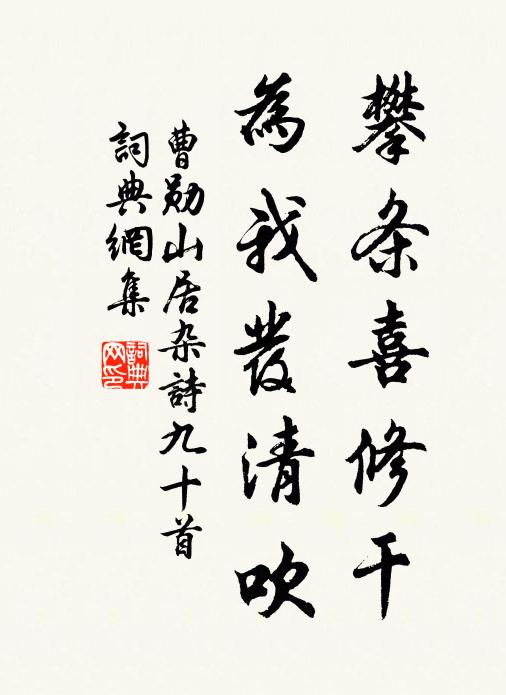 攀条喜修干
為我發清吹
曹勛山居杂詩九十首
詞典網集
詞典網印